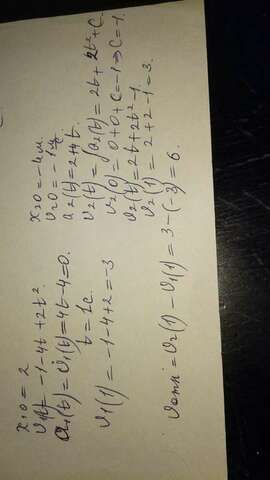 x₁₀ = 2
v₁(t) = -1 - 4t + 2t²
a₁(t) = v̇₁(t) = 4t - 4 = 0.
t = 1c
v₁(1) = -1 - 4 + 2 = -3
x₂₀ = -4м
v₂₀ = -1
a₂(t) = 2 + 4t.
v₂(t) = ∫a₂(t) = 2t + 2t² + C.
v₂(0) = 0 + 0 + C = -1 ⇒ C = 1.
v₂(t) = 2t + 2t² - 1.
v₂(1) = 2 + 2 - 1 = 3.
vотн = v₂(1) - v₁(1) = 3 - (-3) = 6.